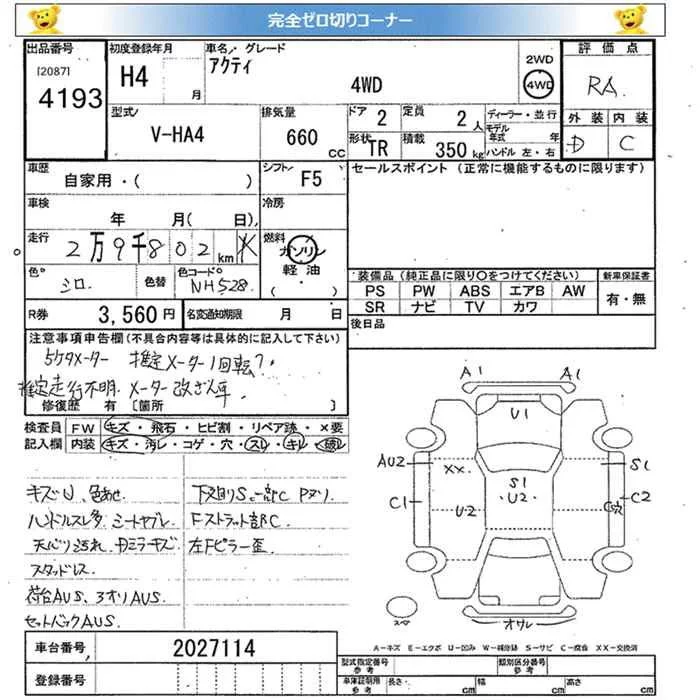 完全ゼロ切りコーナー
出品番号 初度登録年月 車名・グレード 評価点
[2087] 4193
H4 月
アクティ
4WD
2WD
4WD
RA
外装 内装
D C
型式 V-HA4
排気量 660 CC
ドア 2
定員 2 人
ディーラー・並行
モデル年式 年
ハンドル 左・右
形状 TR
積載 350 kg
車歴 自家用・( )
シフト F5
セールスポイント (正常に機能するものに限ります)
車検 年 月( 日)
冷房
走行 2万9千802 km
燃料 ガソリン
軽油
( )
色 シロ
色替
色コード NH528
装備品 (純正品に限り○をつけてください) 新車保証書
PS PW ABS エアB AW 有・無
SR ナビ TV カワ
R券 3,560円 名変通知期限 月 日
後日品
注意事項申告欄 (不具合内容等は具体的に記入して下さい)
5ケタメーター 推定メーター1回転?
推定走行不明. メーター改ざん車.
修復歴 有 [箇所 ]
検査員 FW キズ・飛石・ヒビ割・リペア跡・×要
記入欄 内装 キズ・汚レ・コゲ・穴・スレ・キレ・破レ
キズU、色あせ
ハンドルスレ多 シートヤブレ
天バリ汚れ キズ
スタッドレス
荷台AUS、3オリAUS.
セットバックAUS.
下廻りS.一部C Pヌリ
Fストラット部C
左Fピラー歪
A1 A1
U1
AU2 XX S1 S1
U2
C1 U2 C穴 C2
スペア
オサレ
A-キズ E-エクボ U-凹み W-補修跡 S-サビ C-腐食 XX-交換済
車台番号 2027114
型式指定番号 参考 類別区分番号 参考
登録番号
車庫証明用 参考 長さ cm 幅 cm 高さ cm